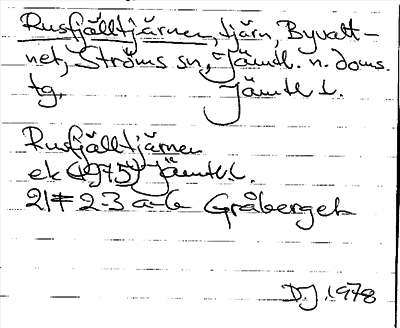 Rusfjälltjärnen, tjärn, Byvatt-
net, Ströms sn, Jämtl. n. doms.
tg. Jämtl l.
Rusfjälltjärnen
ek (1975) Jämtl l.
21F 2-3 a-b Gråberget
D.J. 1978